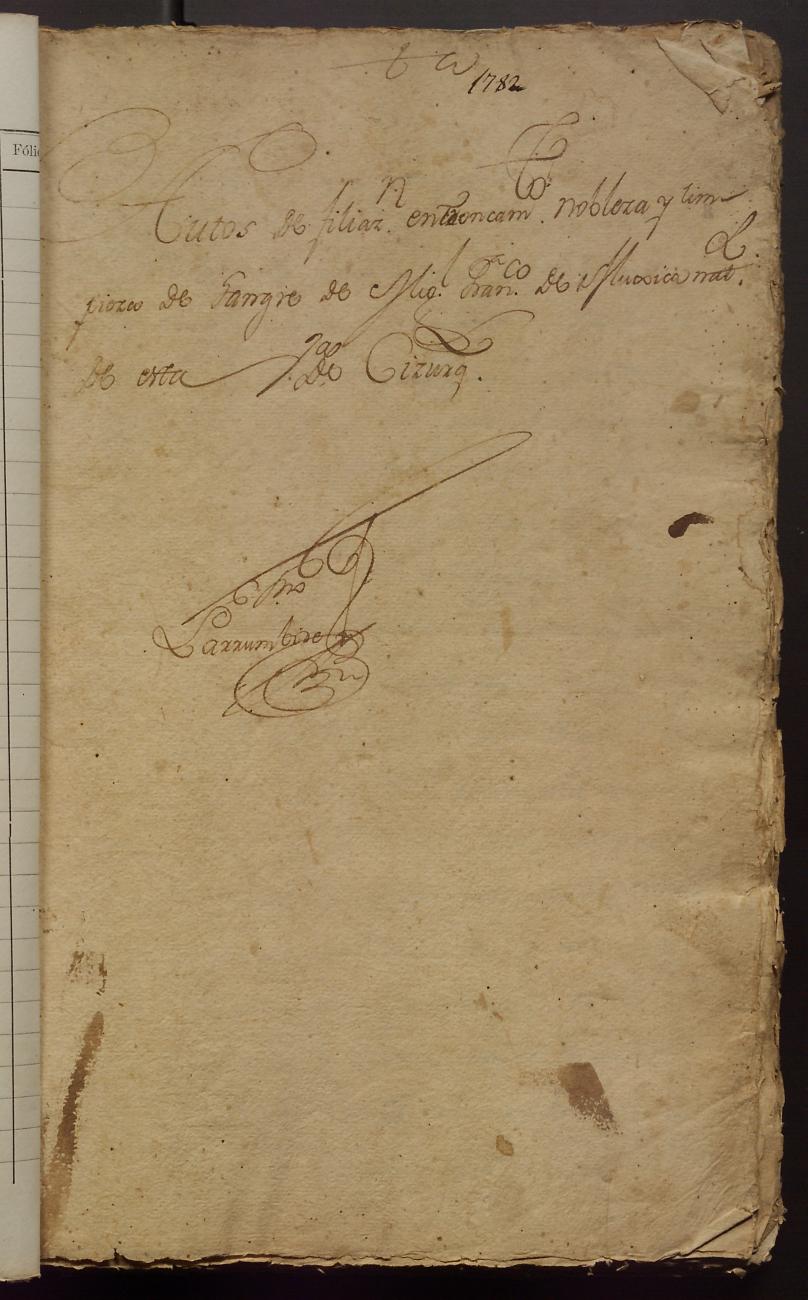 1782
Autos de filiaz.n entroncam.to nobleza y lim-
pieza de sangre de Mig.l Fran.co de Muxica nat.l
de esta V.a de Cizurq.l
Fólio
Ess.no
Larrumbide